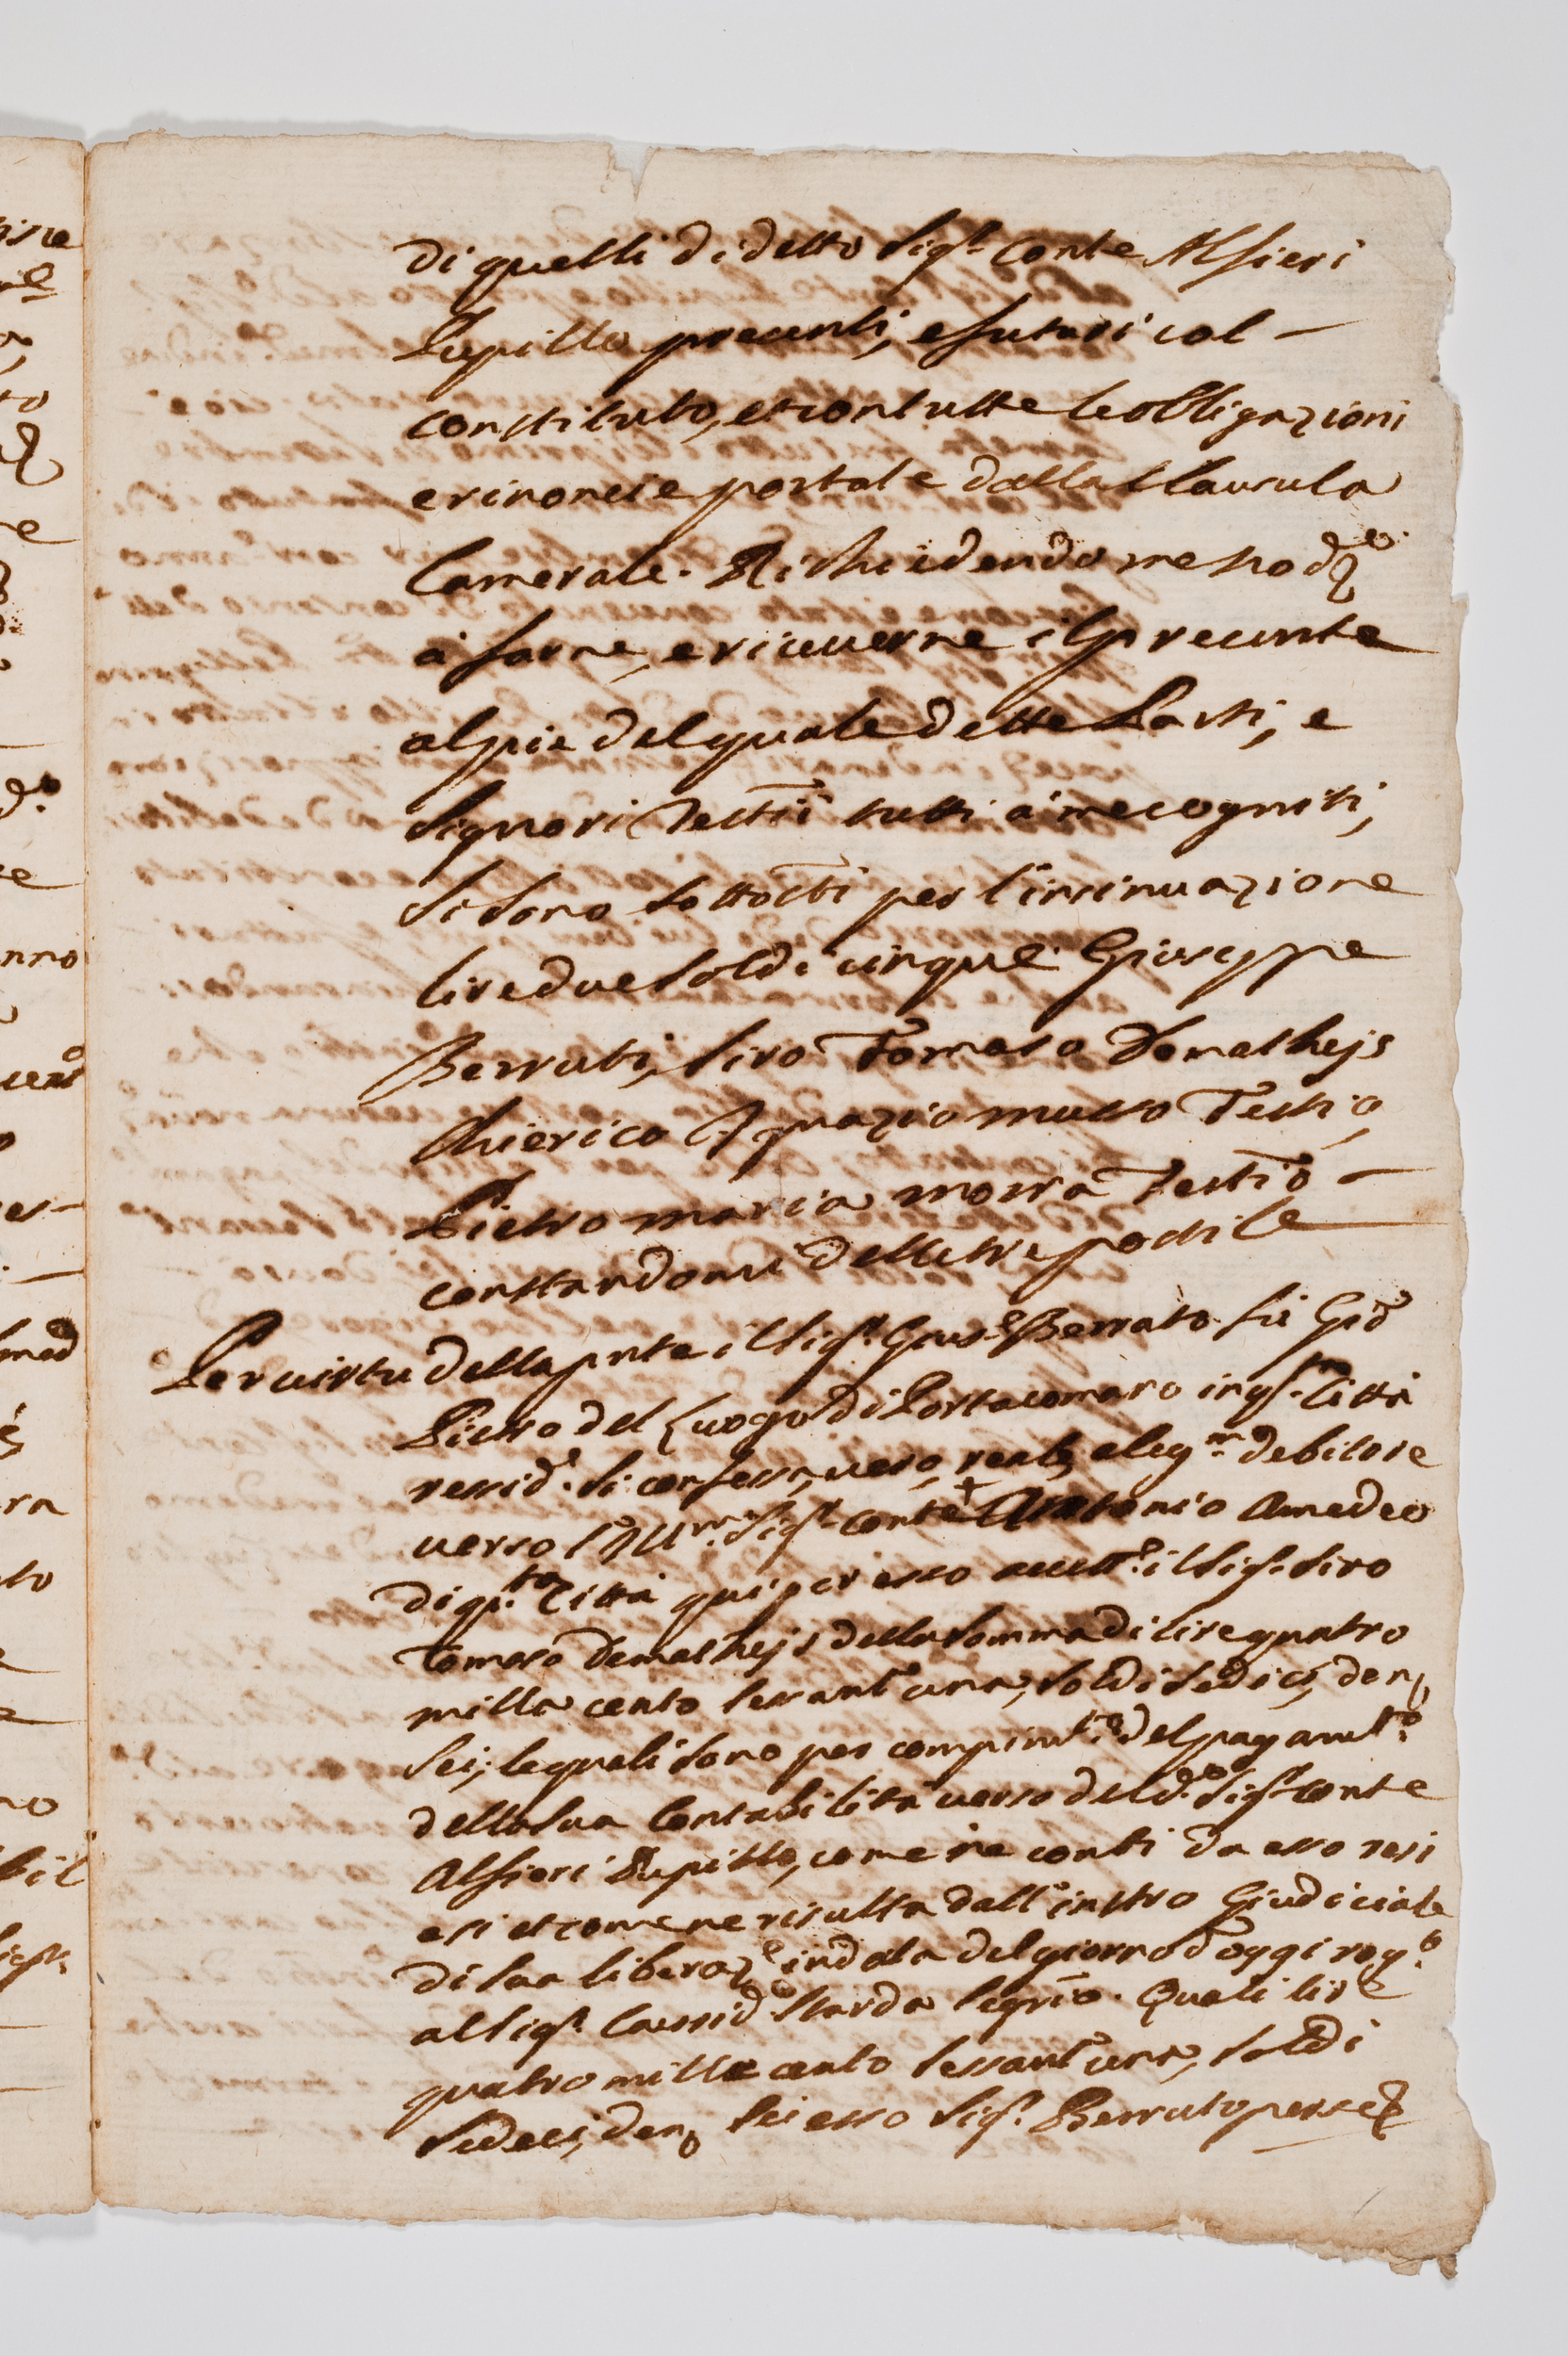 di quelli di detto Sigr. Conte Alfieri
Pupillo presenti, e futuri col –
constituto, et con tutte le obligazioni
e rinoncie portate dalla Clausula
Camerale. Richiedendo me nod.o
à farne, e riceverne il presente
al piè del quale dette Parti, e
Signori Testii tutti à me cogniti,
si sono sottotti per l'insinuazione
lire due soldi cinque. Giuseppe
Berruti, Siro Tomaso Demathejs
Chierico Ignazio musso Testio,
Pietro maria morra Testio –
constandomi delle tre postile
Per virtu della pnte il Sigr. Gius.e Berruto fù Gio
Pietro del Luogo di Portacomaro in qs.ta Città
ressid. si confessa, vero, reale, e leg.mo debitore
verso l'Ill.mo Sigr. Conte + Antonio Amedeo
di qs.ta Città qui per esso accett.e il Sigr. Siro
Tomaso Demathejs della somma di lire quatro
milla cento sessant'una, soldi sedici, den.
sei; le quali sono per compim.to del pagam.to
della sua Contabilità verso del d.o Sigr. Conte
Alfieri Pupillo, come ne conti da esso resi
esi et come ne risulta dall'instro Giudiciale
di sua liberaz.e in data del giorno d'oggi rog.o
al Sigr. Caussid. Sarda segrio. Quali lire
quatro mille cento sessant'una, soldi
sedeci, den. sei esso Sigr. Berruto per se et